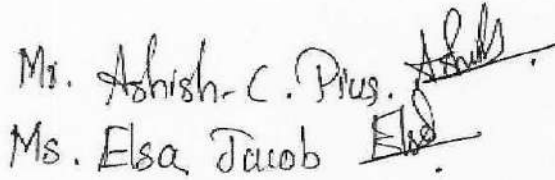 Mr. Ashish. C. Pius. Ashish
Ms. Elsa Jacob Elsa